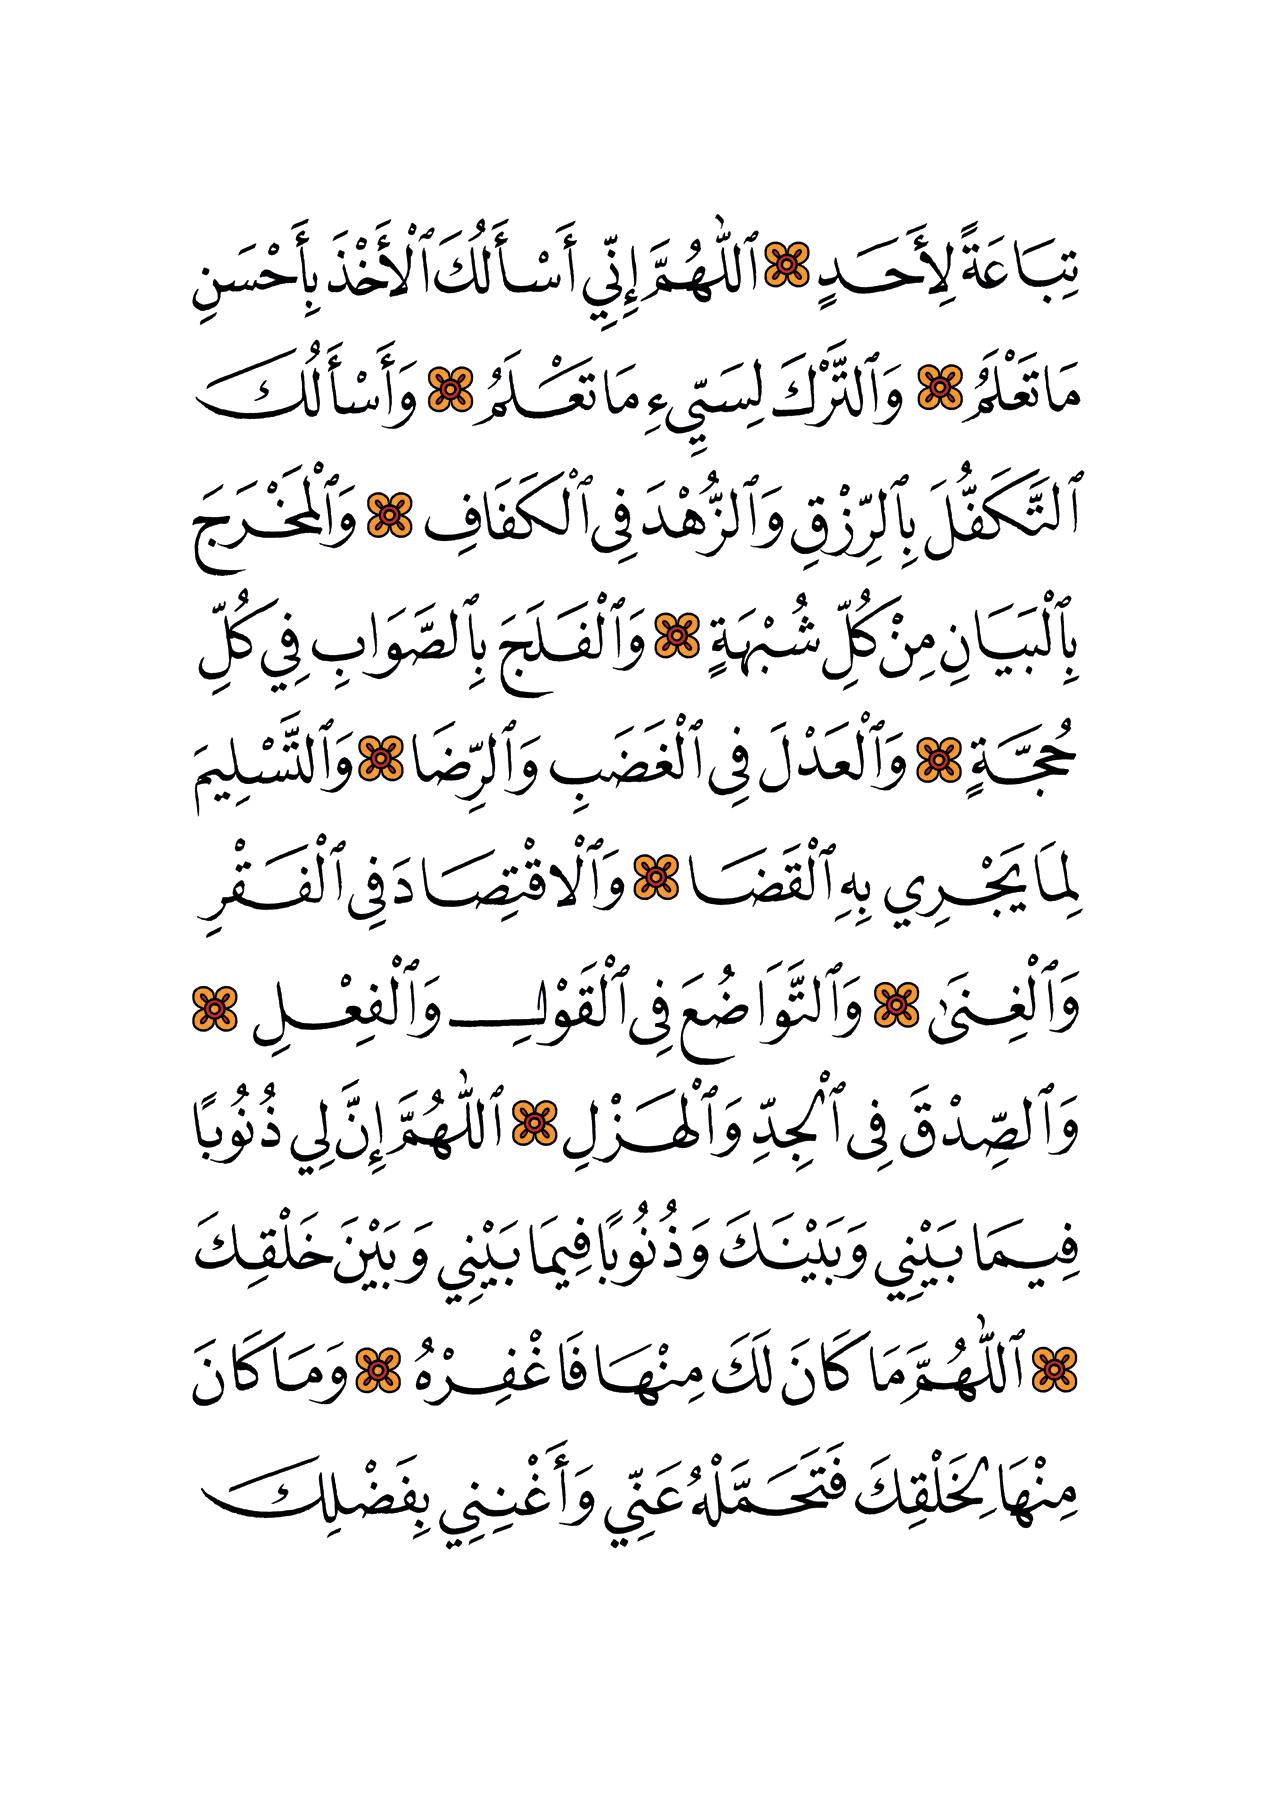 تِبَاعَةً لِأَحَدٍ ۞ ٱللَّهُمَّ إِنِّي أَسْأَلُكَ ٱلْأَخْذَ بِأَحْسَنِ
مَا تَعْلَمُ ۞ وَٱلتَّرْكَ لِسَيِّيءِ مَا تَعْلَمُ ۞ وَأَسْأَلُكَ
ٱلتَّكَفُّلَ بِٱلرِّزْقِ وَٱلزُّهْدَ فِى ٱلْكَفَافِ ۞ وَٱلْمَخْرَجَ
بِٱلْبَيَانِ مِنْ كُلِّ شُبْهَةٍ ۞ وَٱلْفَلَجَ بِٱلصَّوَابِ فِي كُلِّ
حُجَّةٍ ۞ وَٱلْعَدْلَ فِى ٱلْغَضَبِ وَٱلرِّضَا ۞ وَٱلتَّسْلِيمَ
لِمَا يَجْرِي بِهِ ٱلْقَضَا ۞ وَٱلْاقْتِصَادَ فِى ٱلْفَقْرِ
وَٱلْغِنَىٰ ۞ وَٱلتَّوَاضُعَ فِى ٱلْقَوْلِ وَٱلْفِعْلِ ۞
وَٱلصِّدْقَ فِى ٱلْجِدِّ وَٱلْهَزْلِ ۞ ٱللَّهُمَّ إِنَّ لِي ذُنُوبًا
فِيمَا بَيْنِي وَبَيْنَكَ وَذُنُوبًا فِيمَا بَيْنِي وَبَيْنَ خَلْقِكَ
۞ ٱللَّهُمَّ مَا كَانَ لَكَ مِنْهَا فَاغْفِرْهُ ۞ وَمَا كَانَ
مِنْهَا لِخَلْقِكَ فَتَحَمَّلْهُ عَنِّي وَأَغْنِنِي بِفَضْلِكَ